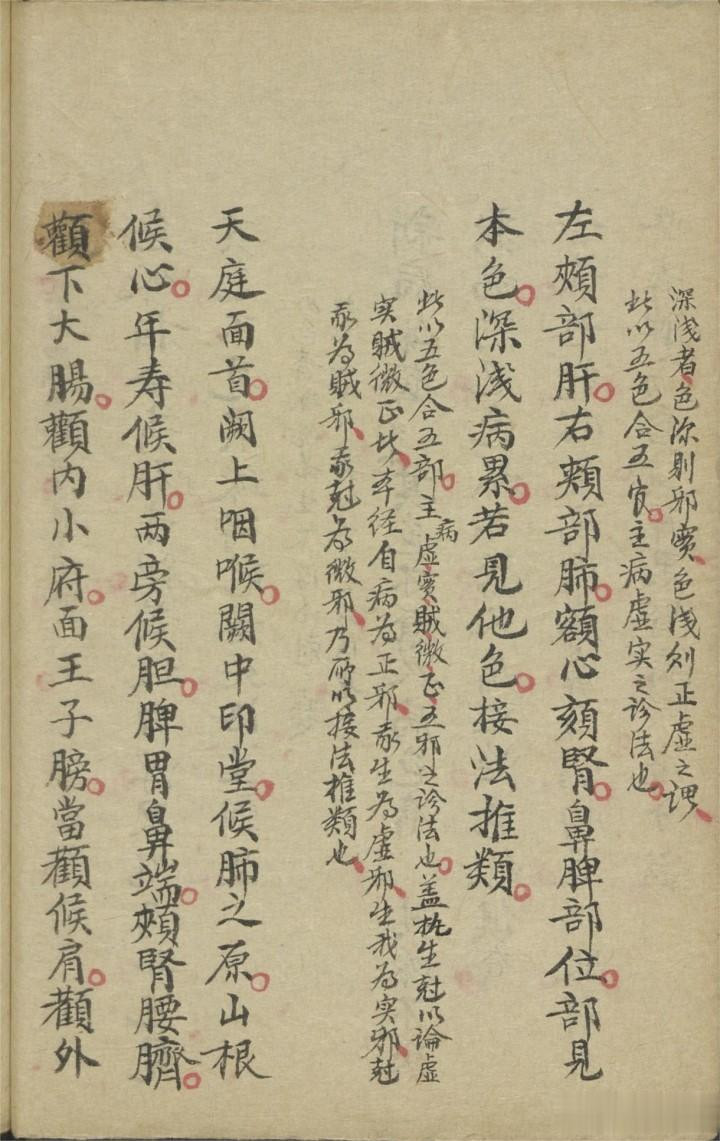 深浅者色深則邪實色浅则正虚之謂
此以五色合五官主病虚实之診法也
左頰部肝右頰部肺額心頦腎鼻脾部位部見
本色深浅病累若見他色按法推類
此以五色合五部主病虚實賊微正五邪之診法也蓋执生尅以論虚
实賊微正此本经自病為正邪我生為虚邪生我為实邪尅
我為賊邪我尅為微邪乃所以按法推類也
天庭面首阙上咽喉闕中印堂候肺之原山根
候心年寿候肝两旁候胆脾胃鼻端頰腎腰臍
顴下大腸顴内小府面王子膀當顴候肩顴外